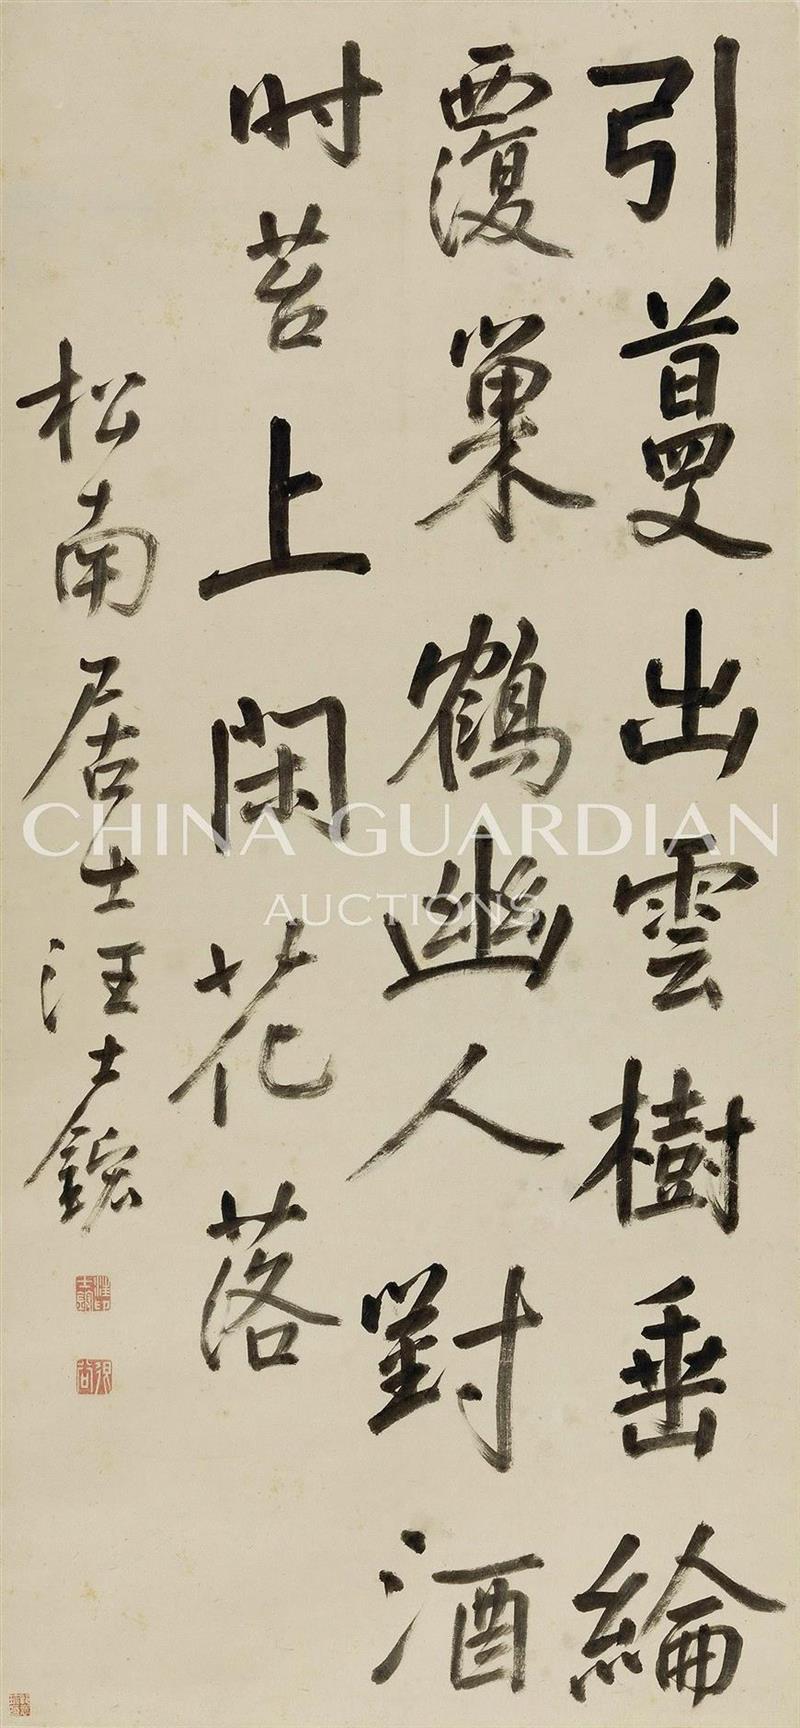 引蔓出雲樹垂綸
覆巢鶴幽人對酒
时苔上閑花落
松南居士汪士鋐
CHINA GUARDIAN
AUCTIONS